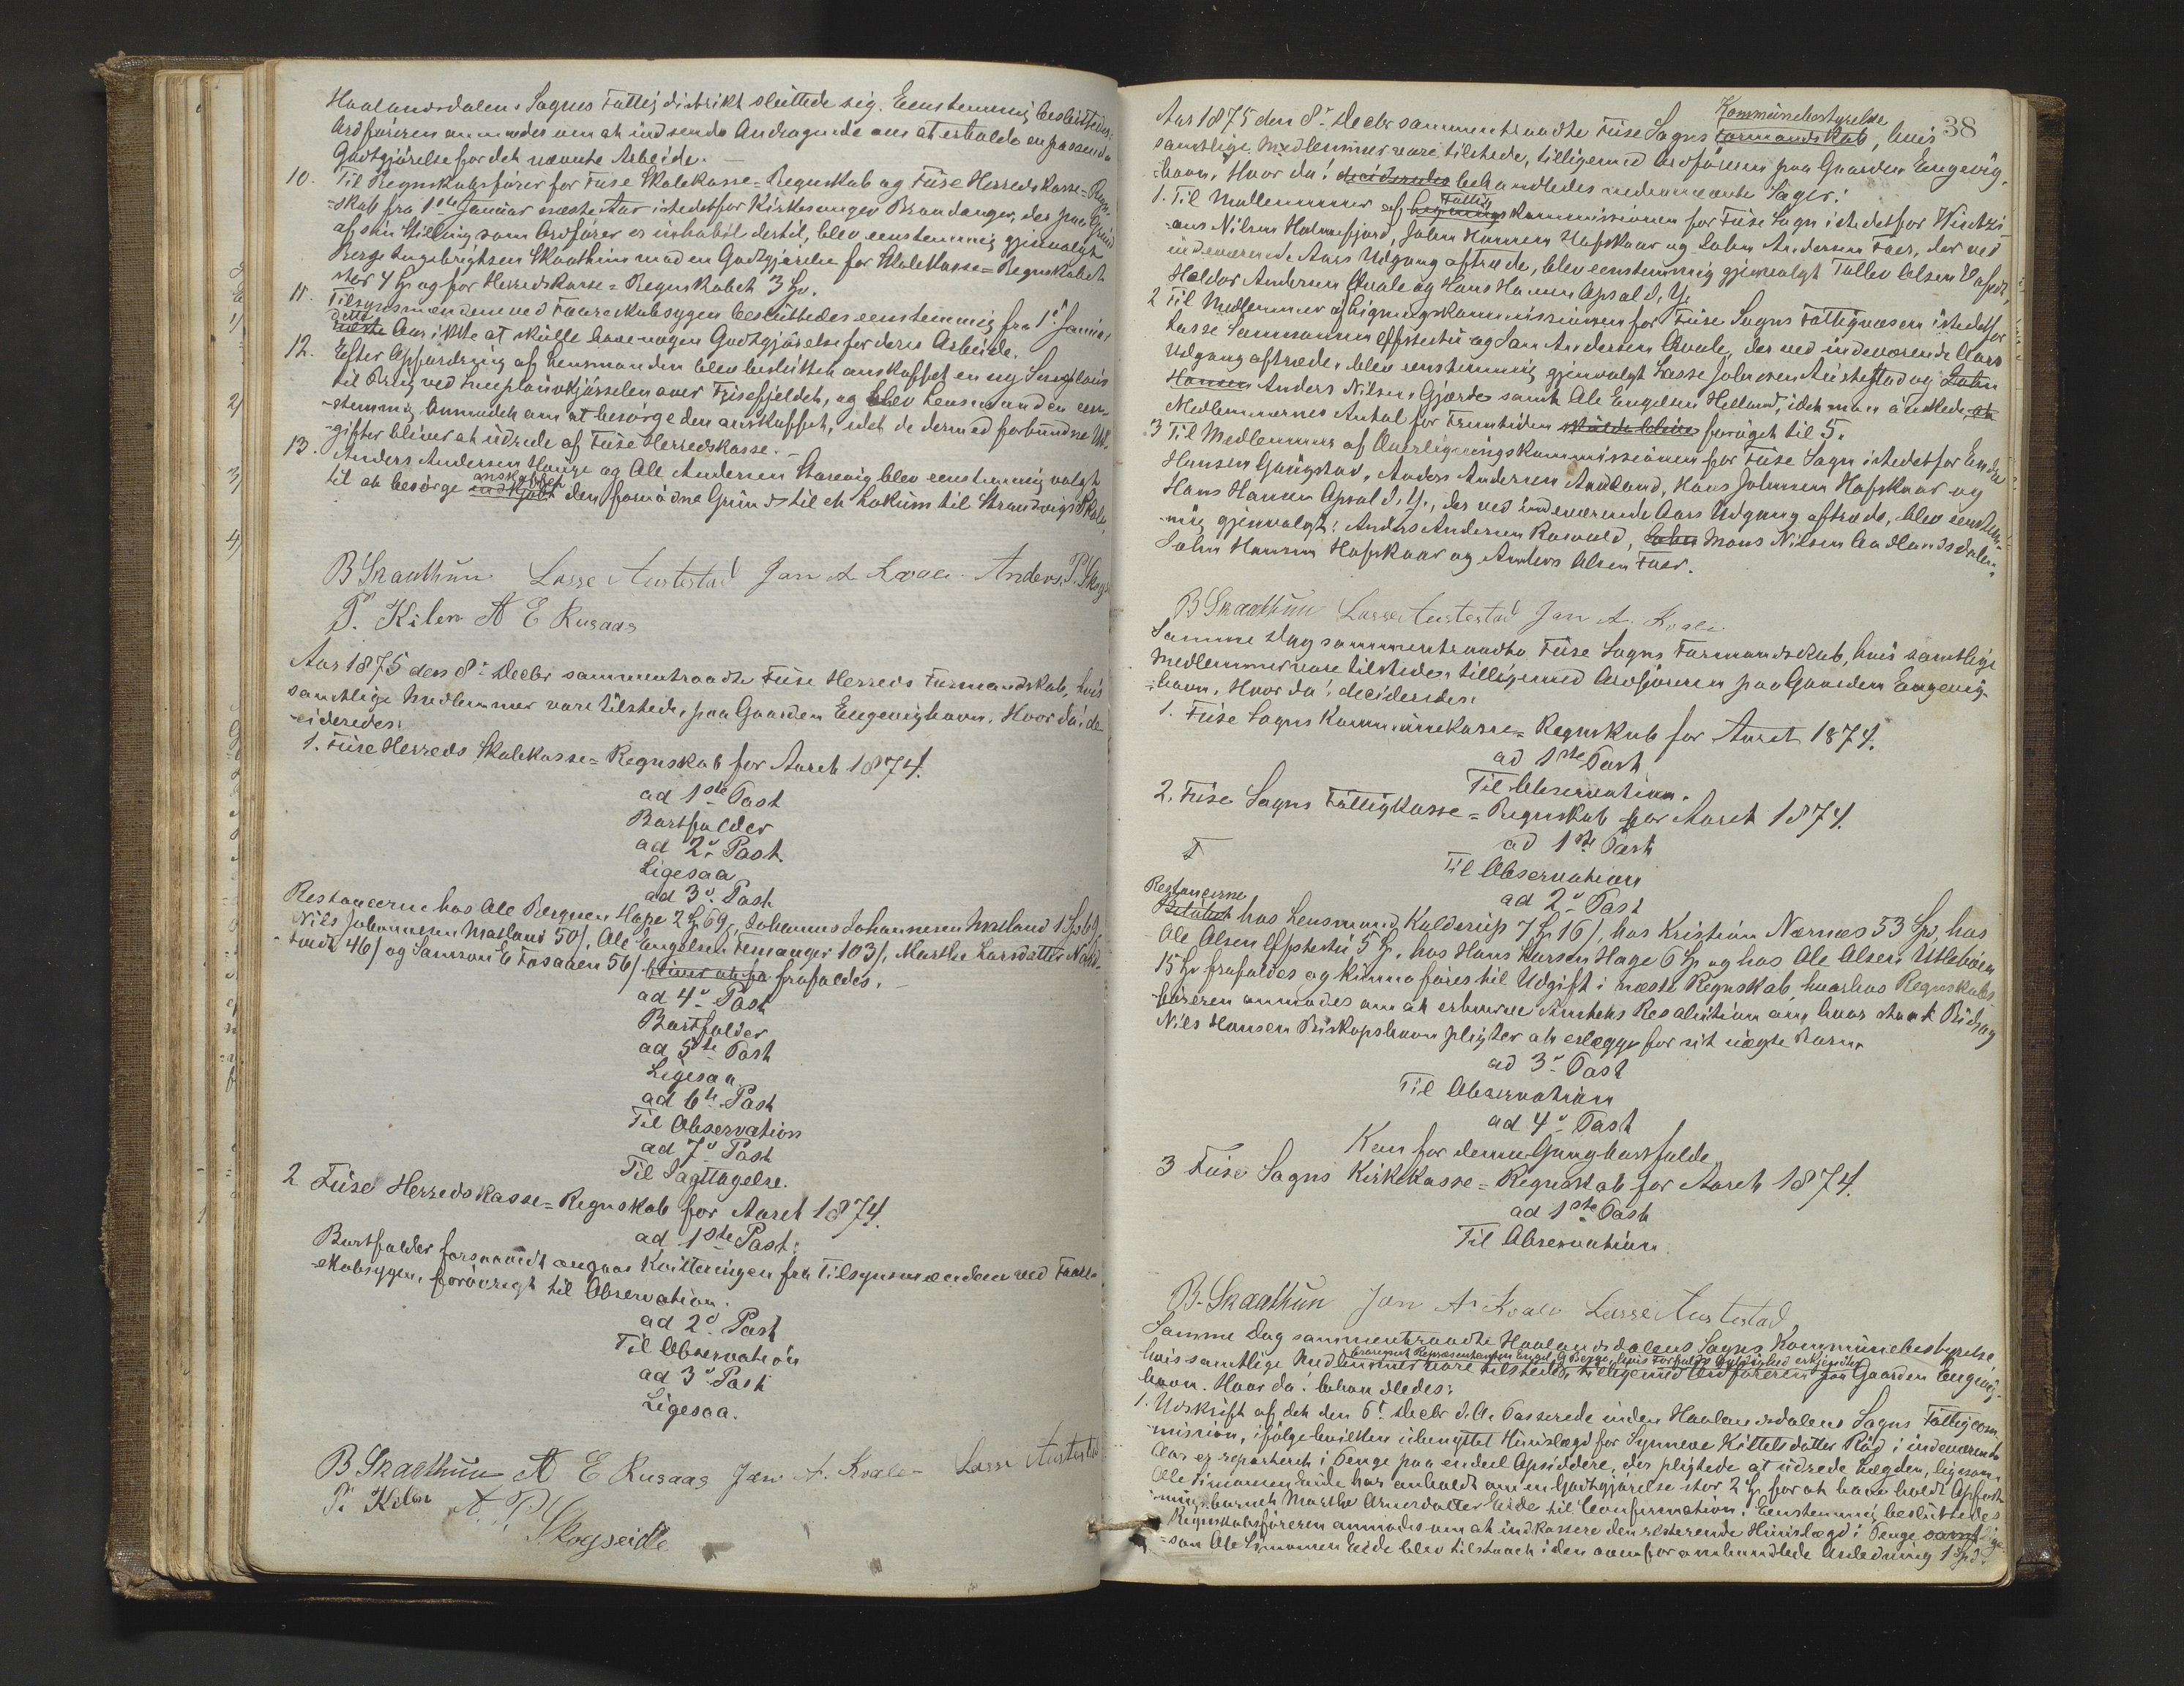 Haalandsdalens Sogns Fattigdistrikt sluttede sig. Eenstemmig besluttedes:
Ordføreren anmodes om at indsende Andragende om at erholde en passende
Godtgjørelse for det nævnte Arbeide. —
10. Til Regnskabsfører for Fuse Skolekasse-Regnskab og Fuse Herredskasse-Regn-
-skab fra 1ste Januar næste Aar istedetfor Kirkesanger Brandanger, der paa Grund
af sin Stilling som Ordfører er inhabil dertil, blev eenstemmig gjenvalgt
Berge Ingebrigtsen Skaathun mod en Godtgjørelse for Skolekasse-Regnskabet
stor 4 Spd og for Herredskasse-Regnskabet 3 Spd.
11. Tilsynsmændene ved Faareskabsygen besluttedes eenstemmig fra 1ste Januar
dette
næste Aar ikke at skulle have nogen Godtgjørelse for deres Arbeide.
12. Efter Opfordring af Lensmanden blev besluttet anskaffet en ny Sneploug
til Brug ved Sneplougkjørselen over Fusefjeldet, og blev Lensmanden een-
-stemmig anmodet om at besørge den anskaffet, idet de dermed forbundne Ud-
-gifter bliver at udrede af Fuse Herredskasse. —
13. Anders Andersen Hauge og Ole Andersen Storevig blev eenstemmig valgt
anskaffet
til at besørge indkjøbt den fornødne Grund til et Lokum til Strandvigs Skole.
B Skaathun Lasse Austestad Jan A Kvale Anders P. Skogs
P. Kilen A E Rusaas
Aar 1875 den 8de Decbr sammentraadte Fuse Herreds Formandskab, hvis
samtlige Medlemmer vare tilstede, paa Gaarden Engevighavn. Hvor da! de-
-cideredes:
1. Fuse Herreds Skolekasse-Regnskab for Aaret 1874.
ad 1ste Post
Bortfalder
ad 2den Post.
Ligesaa
ad 3die Post
Restancerne hos Ole Børgesen Hope 2 Spd 69 s, Johannes Johannesen Matland 1 Spd 69
Nils Johannesen Matland 50 s, Ole Engelsen Femanger 103 s, Marthe Larsdatter Nord-
-tvedt 46 s og Samson E Fosaaen 56 s bliver at fra frafaldes. —
ad 4de Post
Bortfalder
ad 5te Post
Ligesaa.
ad 6te Post
Til Observation
ad 7de Post
Til Iagttagelse.
2 Fuse Herredskasse-Regnskab for Aaret 1874.
ad 1ste Post:
Bortfalder forsaavidt angaar Kvitteringen fra Tilsynsmændene ved Faare-
-skabsygen, forøvrigt til Observation.
ad 2den Post
Til Observation
ad 3die Post
Ligesaa.
B Skaathun A E Rusaas Jan A. Kvale Lasse Austestad
P. Kilen A. P. Skogseide
38
Kommunebestyrelse
Aar 1875 den 8de Decbr sammentraadte Fuse Sogns Formandskab, hvis
samtlige Medlemmer vare tilstede, tilligemed Ordføreren paa Gaarden Engevig-
-havn. Hvor da! decideredes behandledes nedennævnte Sager:
Fattig
1. Til Medlemmer af Lignings kommissionen for Fuse Sogn istedetfor Wintzi-
-ans Nilsen Holmefjord, John Hansen Hafskaar og John Andersen Faer, der ved
indeværende Aars Udgang aftræde, blev eenstemmig gjenvalgt Tollev Olsen
Haldor Andersen Kvale og Hans Hansen Opsal d. Y.
2 Til Medlemmer af Ligningskommissionen for Fuse Sogns Fattigvæsen istedetfor
Lasse Samsonsen Effstestu og Jan Andersen Kvale, der ved indeværende Aars
Udgang aftræde, blev eenstemmig gjenvalgt Lasse Johnesen Austestad og John
Hansen Anders Nilsen Gjærde samt Ole Engelsen Helland, idet man ønskede at
Medlemmernes Antal for Fremtiden skulde blive forøget til 5.
3 Til Medlemmer af Overligningskommissionen for Fuse Sogn istedetfor Endre
Hansen Gaugstad, Anders Andersen Andland, Hans Johnsen Hafskaar og
Hans Hansen Opsal d. Y., der ved indeværende Aars Udgang aftræde, blev eenstem-
-mig gjenvalgt: Anders Andersen Rosvold, John Mons Nilsen Aadlandsdalen,
John Hansen Hafskaar og Anders Olsen Faer.
B Skaathun Lasse Austestad Jan A. Kvale
Samme Dag sammentraadte Fuse Sogns Formandskab, hvis samtlige
Medlemmer vare tilstede, tilligemed Ordføreren paa Gaarden Engevig-
-havn. Hvor da! decideredes:
1. Fuse Sogns Kommunekasse-Regnskab for Aaret 1874.
ad 1ste Post
Til Observation.
2. Fuse Sogns Fattigkasse-Regnskab for Aaret 1874.
ad 1ste Post
Til Observation
ad 2den Post
Restancerne
Beløbet hos Lensmand Kulderup 7 Spd 16 s, hos Kristian Nærnæs 53 Spd, hos
Ole Olsen Effstestu 5 Spd, hos Hans Larsen Hage 6 Spd og hos Ole Olsen Utlebøen
15 Spd frafaldes og kunne føres til Udgift i næste Regnskab, hvorhos Regnskabs-
-føreren anmodes om at erhverve Amtets Resolution om, hvor stort Bidrag
Nils Hansen Biskopshavn pligter at erlægge for sit uægte Barn.
ad 3die Post
Til Observation
ad 4de Post
Kan for denne Gang bortfalde.
3 Fuse Sogns Kirkekasse-Regnskab for Aaret 1874.
ad 1ste Post
Til Observation.
B. Skaathun Jan A. Kvale Lasse Austestad
Samme Dag sammentraadte Haalandsdalens Sogns Kommunebestyrelse
undtagen Repræsentanten Engel O Berge, hvis Forfald gyldighed erkjendtes
hvis samtlige Medlemmer vare tilstede, tilligemed Ordføreren paa Gaarden Engevig-
havn. Hvor da! behandledes:
1. Udskrift af det den 6te Decbr d. A. Passerede inden Haalandsdalens Sogns Fattigcom-
mission, ifølge hvilken ubenyttet Huuslægd for Synneve Kittelsdatter Rød i indeværende
Aar er reparteret i Penge paa endeel Opsiddere, der pligtede at udrede Lægden, ligesom
Ole Simonsen Eide har anholdt om en Godtgjørelse stor 2 Spd for at have holdt Opfost-
-ringsbarnet Marthe Arnesdatter Eide til Confirmation. Eenstemmig besluttedes
Regnskabsføreren anmodes om at indkassere den resterende Huuslægd i Penge samt lige-
-som Ole Simonsen Eide blev tilstaaet i den ovenfor omhandlede Anledning 1 Spd.